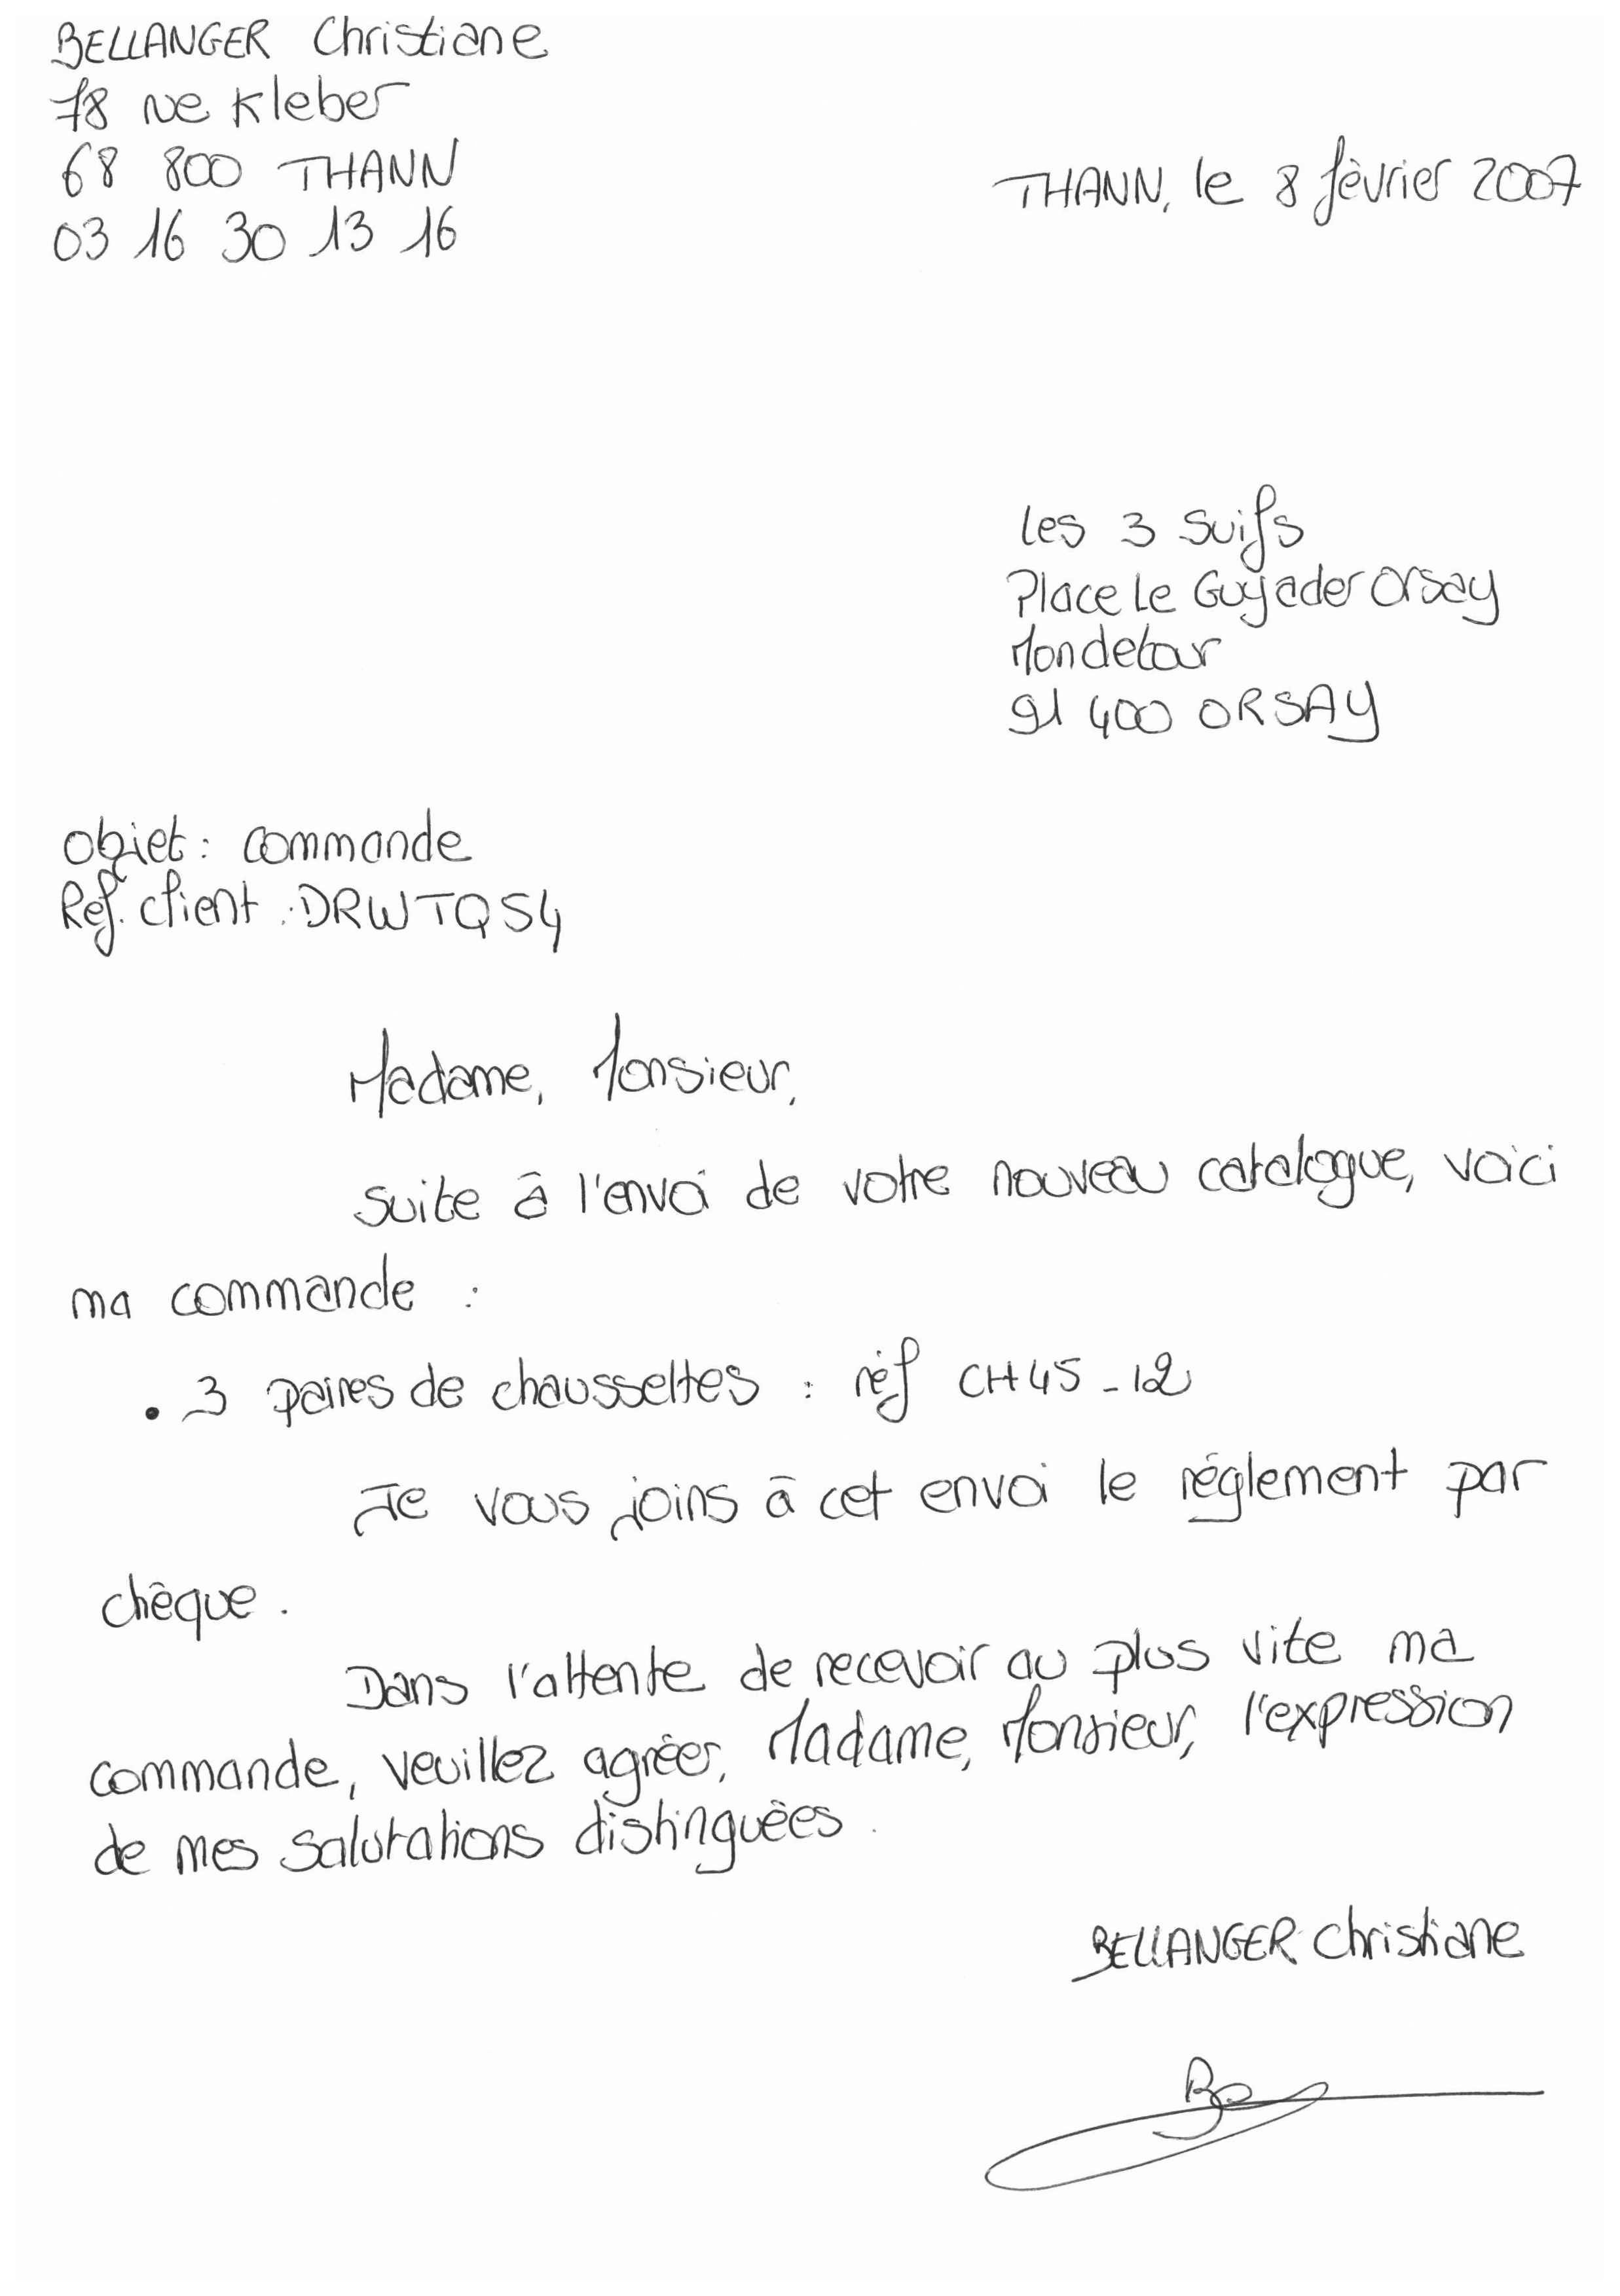 BELLANGER Christiane
78 rue Kleber
68 800 THANN
03 16 30 13 16
THANN, le 8 février 2007
Les 3 Suifs
Place Le Guyader Orsay
Mondetour
91 400 ORSAY
Objet : commande
Réf. client : DRWTQS4
Madame, Monsieur,
suite à l'envoi de votre nouveau catalogue, voici
ma commande :
. 3 paires de chaussettes : réf CH45-12
Je vous joins à cet envoi le réglement par
chèque.
Dans l'attente de recevoir au plus vite ma
commande, veuillez agréer, Madame, Monsieur, l'expression
de mes salutations distinguées.
BELLANGER Christiane